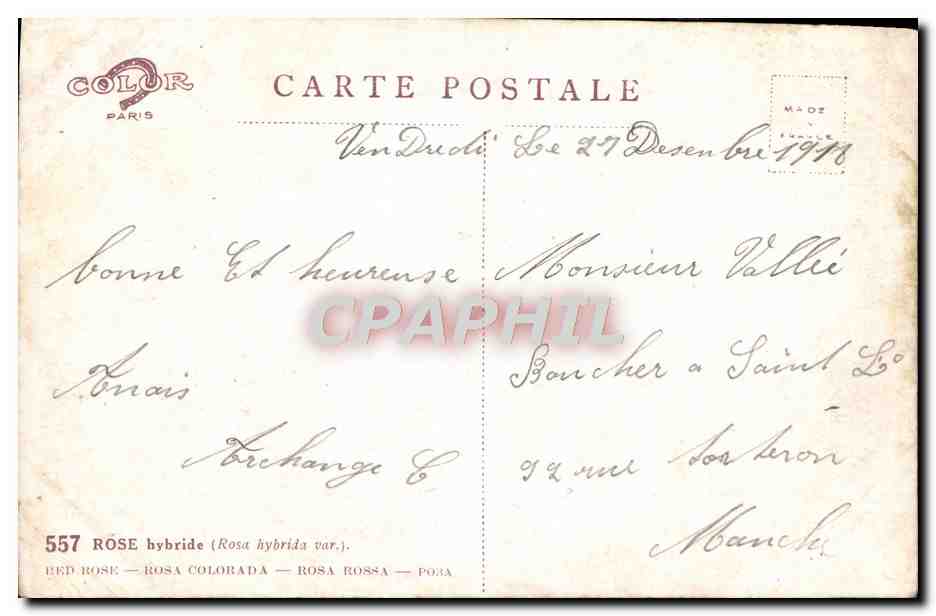 COLOR
PARIS
CARTE POSTALE
MADE
FRANCE
VenDredi Le 27 Desenbre 1918
bonne Et heureuse
Anais
Archange C
Monsieur Vallée
Boucher a Saint Lo
rue Torteron
Manche
CPAPHIL
557 ROSE hybride (Rosa hybrida var.).
RED ROSE — ROSA COLORADA — ROSA ROSSA — РОЗА